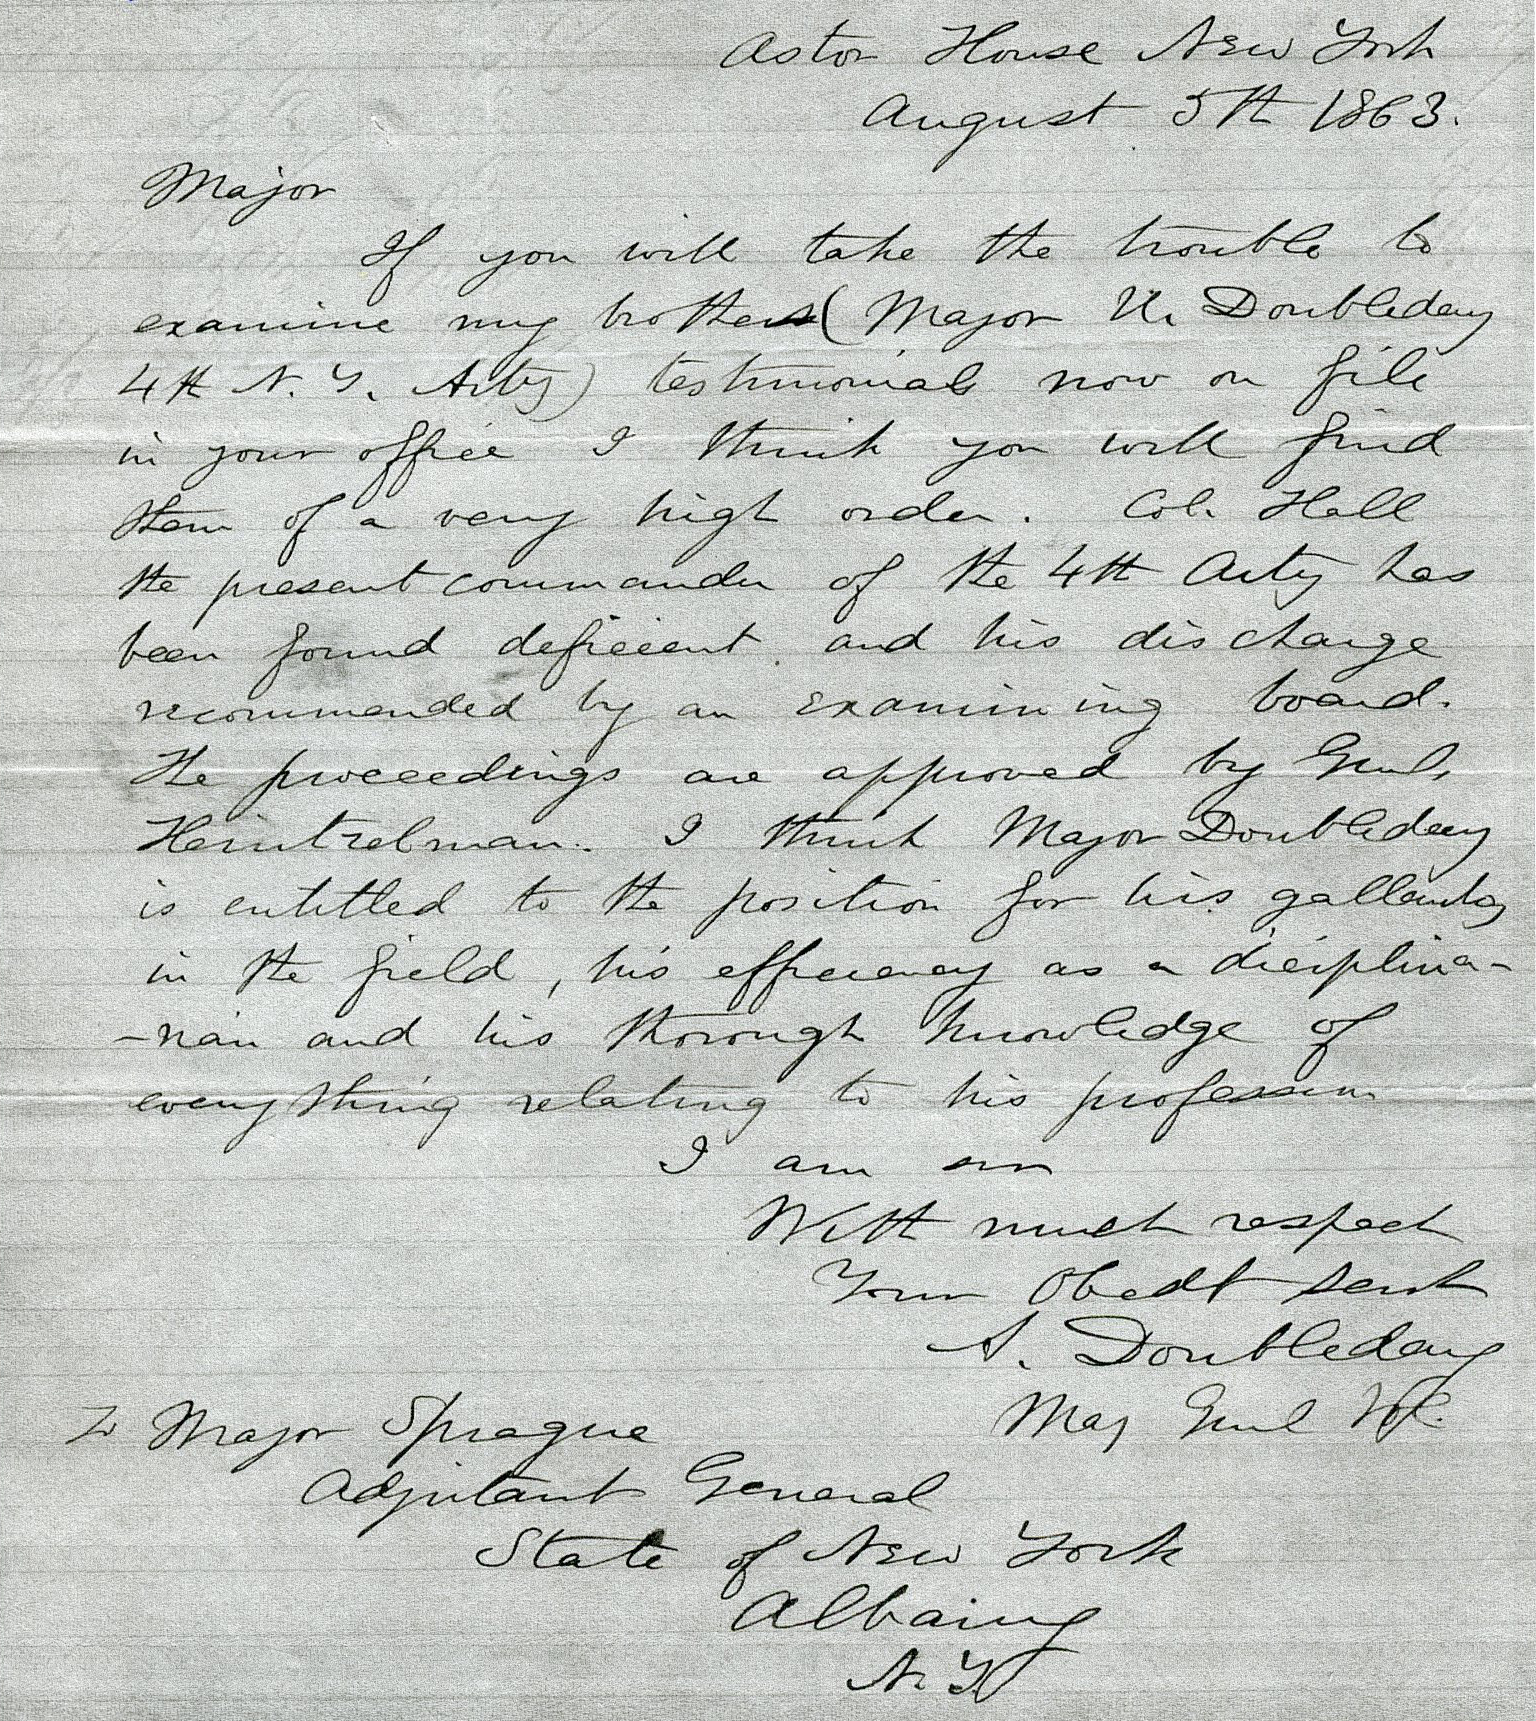 Astor House New York
August 5th 1863.
Major
If you will take the trouble to
examine my brothers (Major U. Doubleday
4th N. Y. Arty) testimonials now on file
in your office I think you will find
them of a very high order. Col. Hall
the present commander of the 4th Arty has
been found deficient and his discharge
recommended by an examining board.
The proceedings are approved by Genl.
Heintzelman. I think Major Doubleday
is entitled to the position for his gallantry
in the field, his efficiency as a disciplina-
-rian and his thorough knowledge of
everything relating to his profession
I am sir
With much respect
Your Obedt servt
A. Doubleday
Maj Genl Vol.
To Major Sprague
Adjutant General
State of New York
Albany
N. Y.